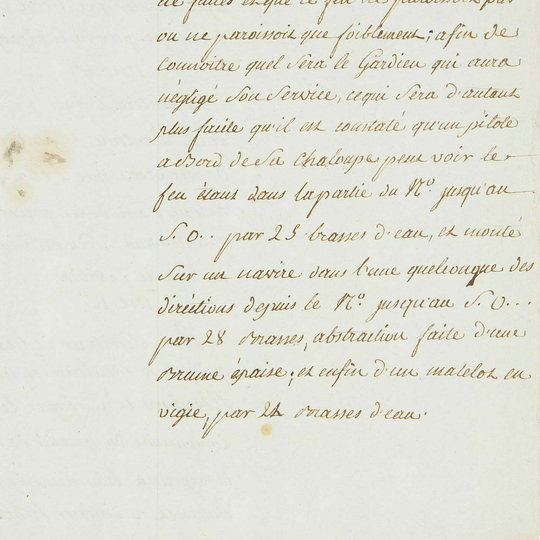 de faites et que ce feu ne paroissoit pas
ou ne paroissoit que foiblement; afin de
connoitre quel sera le Gardien qui aura
négligé son service, ce qui sera d'autant
plus facile qu'il est constaté qu'un pilote
a Bord de sa chaloupe peut voir le
feu étant dans la partie du N.o jusqu'au
S. O.. par 23 brasses d'eau, et monté
sur un navire dans l'une quelconque des
diréctions depuis le N.o jusqu'au S. O...
par 28 Brasses, abstraction faite d'une
Brume épaisse; et enfin d'un matelot en
vigie, par 24 Brasses d'eau.